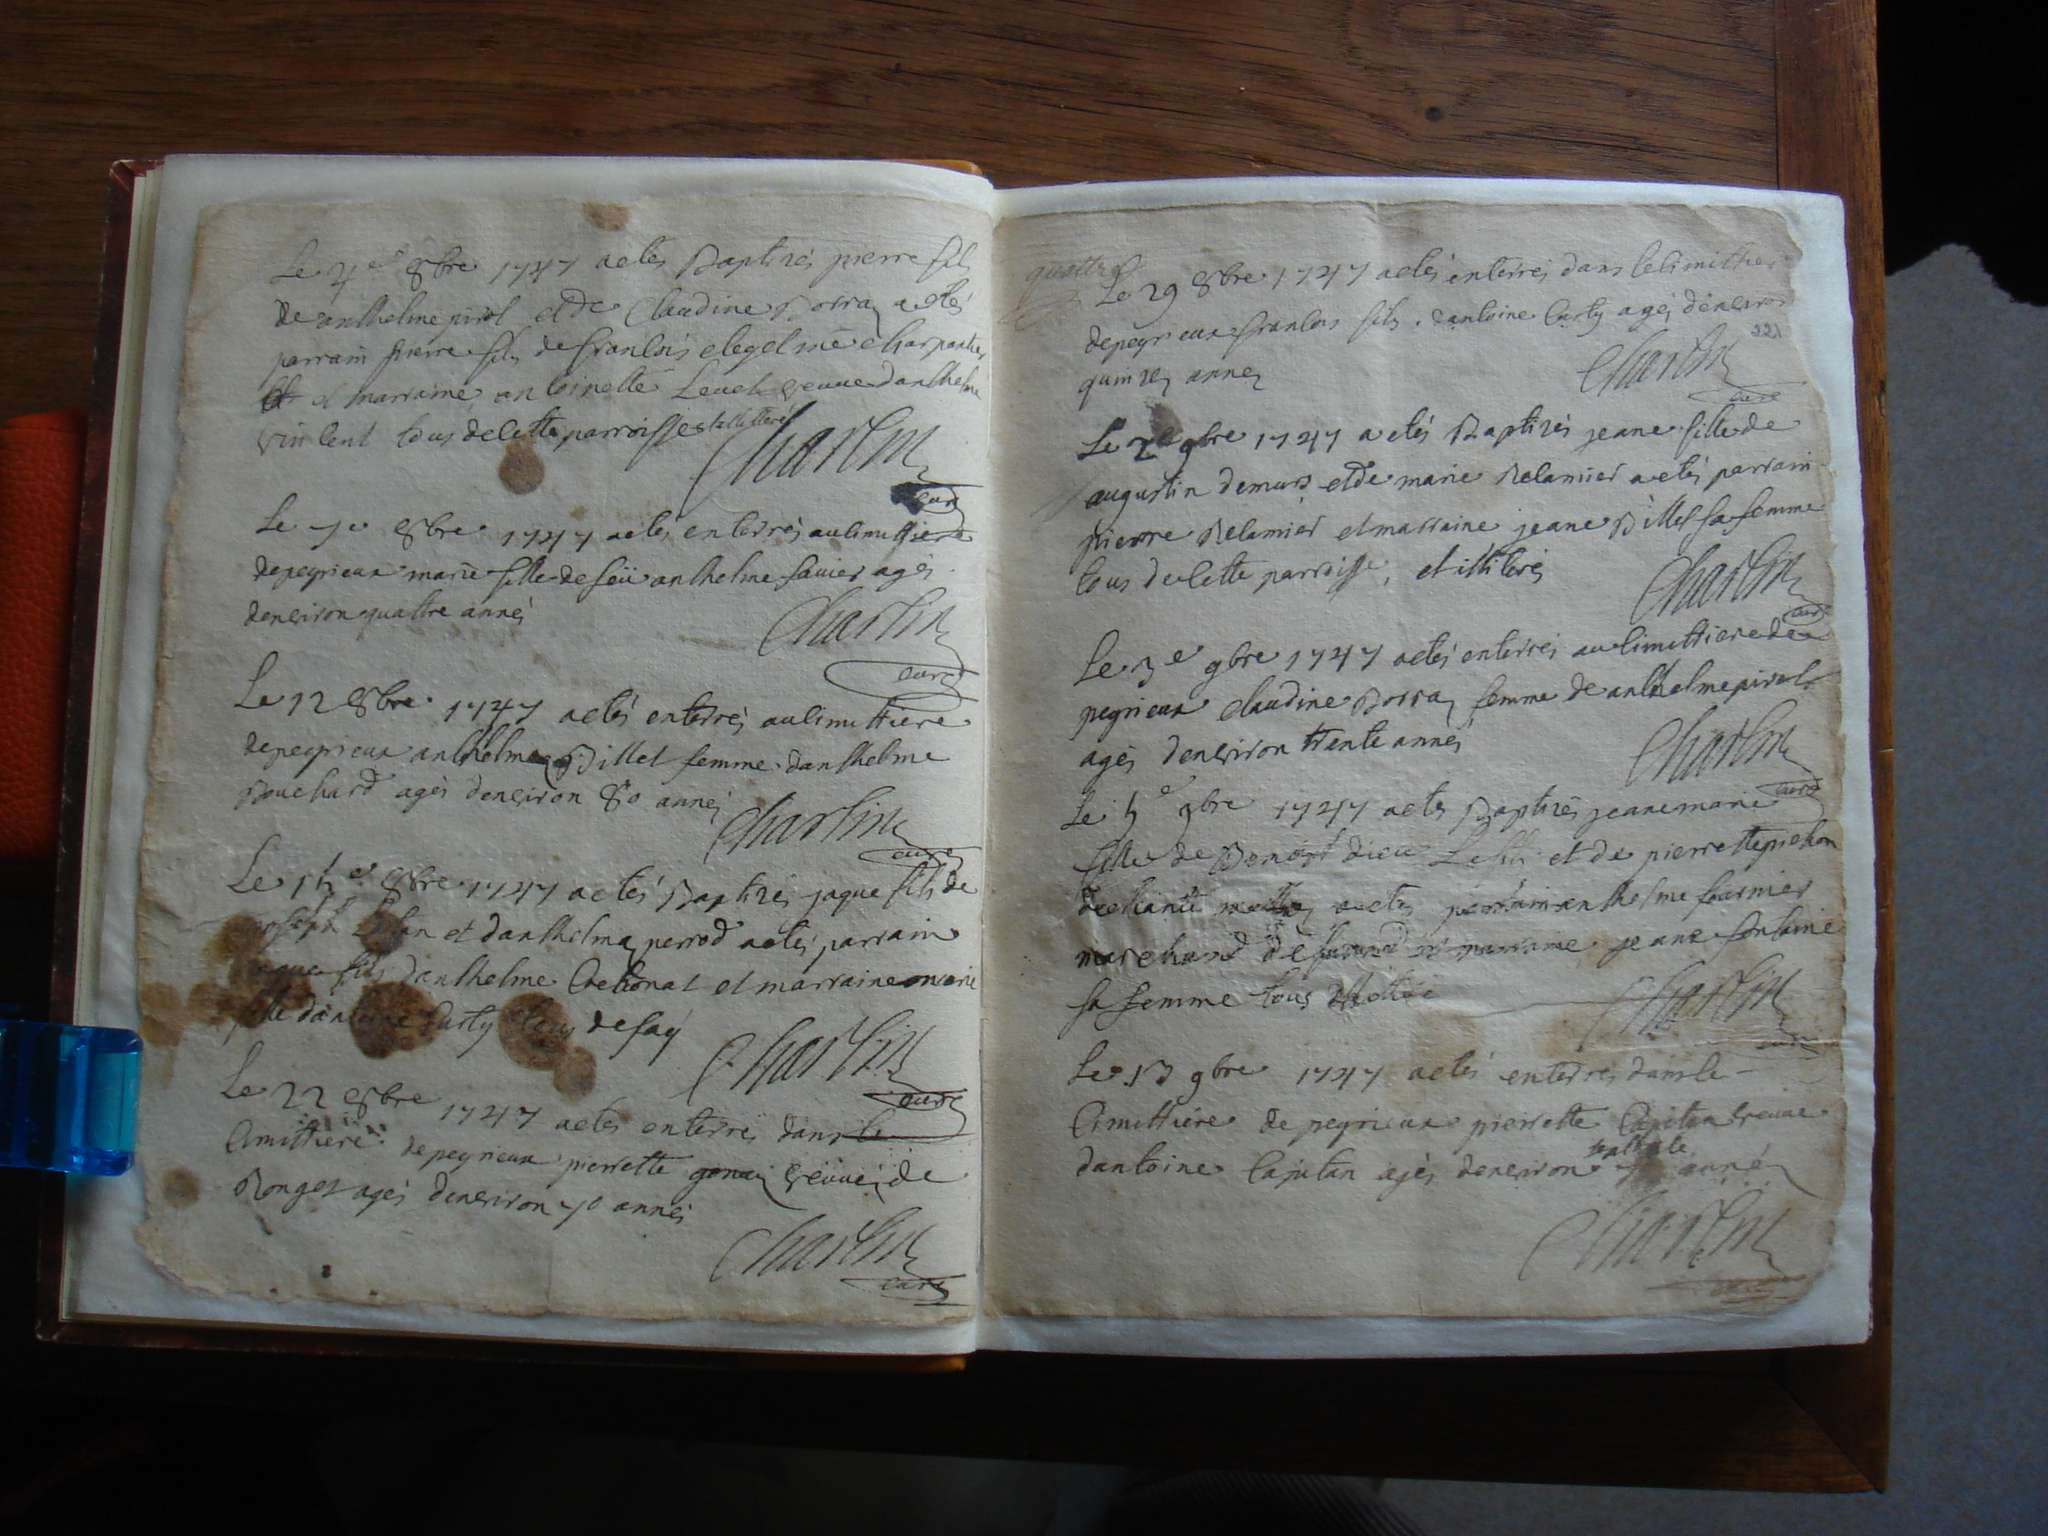 Le 4e 8bre 1747 a etés Baptizés pierre fils
de anthelme pirol et de Claudine Borra a etés
parrain pierre fils de francois charpantier
et marraine antoinette veuve danthelme
vincent tous de cette parroisse et illitterés
Charlin
curé
Le 7e 8bre 1747 a etés enterrés au cimittiere
de peyrieux marie fille de feü anthelme favier agés
denviron quattre annés
Charlin
curé
Le 12 8bre 1747 a etés enterrés au cimittiere
de peyrieux anthelma Billet femme danthelme
Bouchard agés denviron 80 annés
Charlin
curé
Le 15e 8bre 1747 a etés Baptizés jaque fils de
joseph et danthelma perrod a etés parrain
jaque fils danthelme et marraine marie
fille dantoine Curty tous de fay
Charlin
curé
Le 22 8bre 1747 a etés enterrés dans le
Cimittiere de peyrieux pierrette veuve de
Ronget agés denviron 70 annés
Charlin
curé
quattre
Le 29 8bre 1747 a etés enterrés dans le cimittiere
de peyrieux francois fils dantoine Curty agés denviron
221
quinzes annés
Charlin
curé
Le 2e 9bre 1747 a etés Baptizés jeane fille de
augustin demurs et de marie Relamier a etés parrain
pierre Relamier et marraine jeane Billet sa femme
tous de cette parroisse, et illiterés
Charlin
curé
Le 3e 9bre 1747 a etés enterrés au cimittiere de
peyrieux Claudine Borra femme de anthelme pirol
agés denviron trente annés
Charlin
curé
Le 5e 9bre 1747 a etés Baptizés jeane marie
fille de Benoit dieu et de pierrette pichon
a etés parrain anthelme fournier
marchand de et marraine jeane fontaine
sa femme tous
Charlin
curé
Le 13 9bre 1747 a etés enterrés dans le
Cimittiere de peyrieux pierrette Capitan veuve
dantoine Capitan agés denviron annés
Charlin
curé